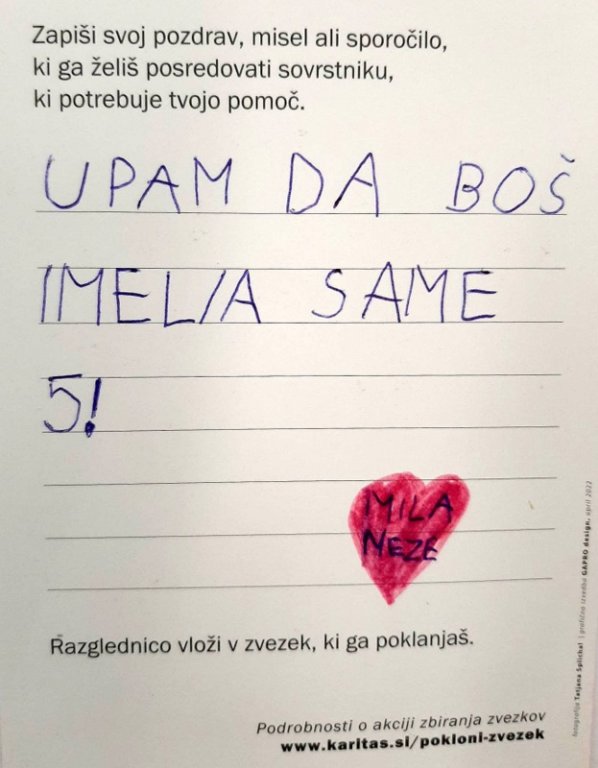 Zapiši svoj pozdrav, misel ali sporočilo,
ki ga želiš posredovati sovrstniku,
ki potrebuje tvojo pomoč.
UPAM DA BOŠ
IMEL/A SAME
5!
MILA
NEZE
Razglednico vloži v zvezek, ki ga poklanjaš.
Podrobnosti o akciji zbiranja zvezkov
www.karitas.si/pokloni-zvezek
fotografija Tatjana Splichal | grafična izvedba GAPRO design, april 2022